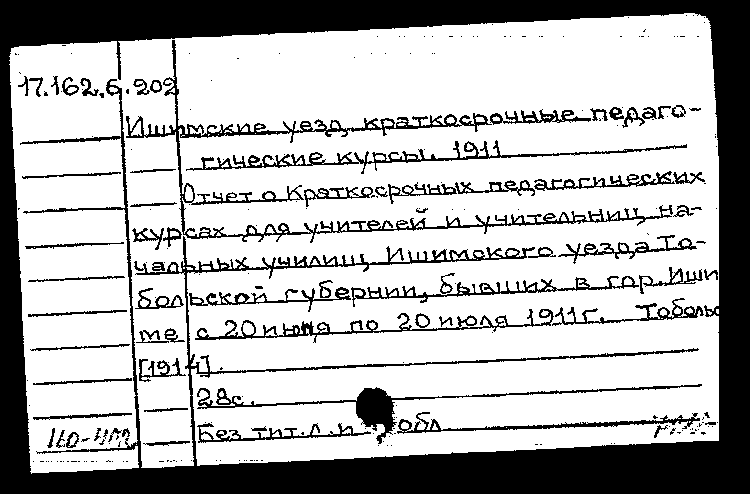 17.162.6.202
Ишимские уезд. краткосрочные педаго-
гические курсы. 1911
Отчет о Краткосрочных педагогических
курсах для учителей и учительниц на-
чальных училищ Ишимского уезда То-
больской губернии, бывших в гор. Иши
ме с 20 июня по 20 июля 1911г. Тобольс
[1914].
28с.
Без тит. л. и обл